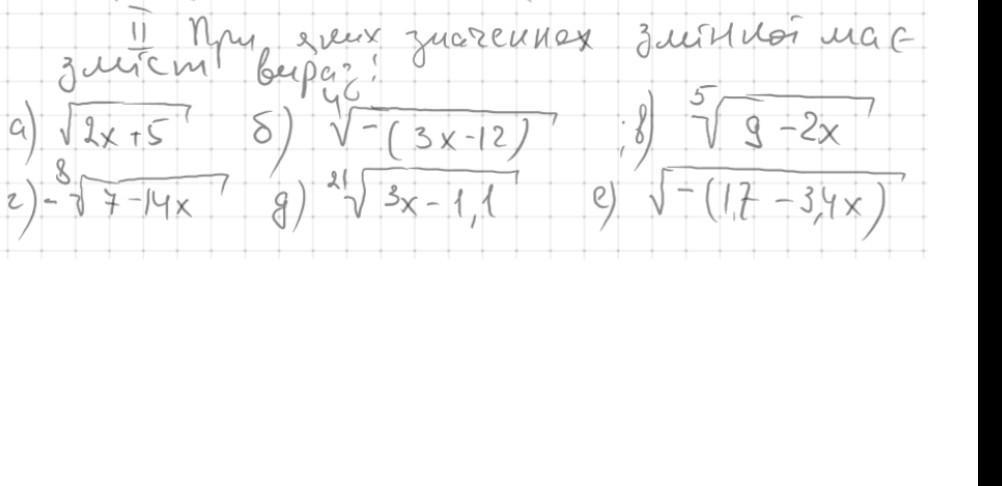 II При яких значеннях змінної має
зміст вираз:
а) √(2x+5) б) ⁴⁶√(-(3x-12)) ; в) ⁵√(9-2x)
г) -⁸√(7-14x) д) ²¹√(3x-1,1) е) √(-(1,7-3,4x))